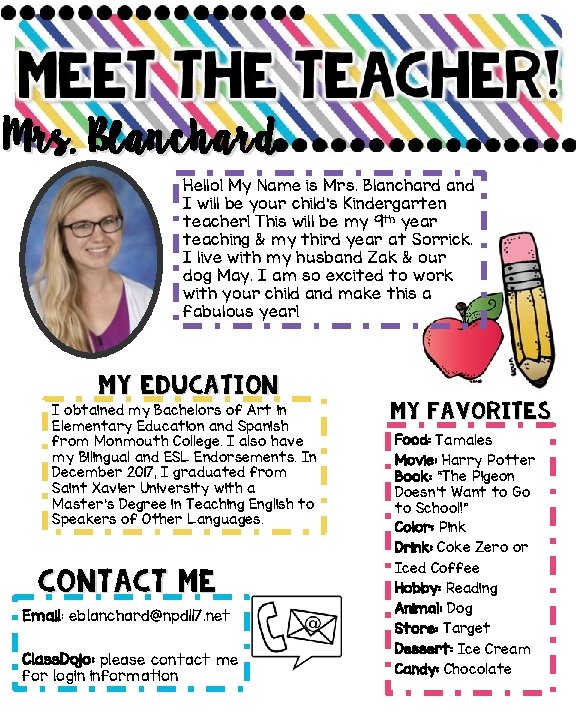 MEET THE TEACHER!
Mrs. Blanchard
Hello! My Name is Mrs. Blanchard and
I will be your child's Kindergarten
teacher! This will be my 9th year
teaching & my third year at Sorrick.
I live with my husband Zak & our
dog May. I am so excited to work
with your child and make this a
fabulous year!
MY EDUCATION
I obtained my Bachelors of Art in
Elementary Education and Spanish
from Monmouth College. I also have
my Bilingual and ESL Endorsements. In
December 2017, I graduated from
Saint Xavier University with a
Master's Degree in Teaching English to
Speakers of Other Languages.
MY FAVORITES
Food: Tamales
Movie: Harry Potter
Book: "The Pigeon
Doesn't Want to Go
to School!"
Color: Pink
Drink: Coke Zero or
Iced Coffee
Hobby: Reading
Animal: Dog
Store: Target
Dessert: Ice Cream
Candy: Chocolate
CONTACT ME
Email: eblanchard@npd117.net
ClassDojo: please contact me
for login information
@